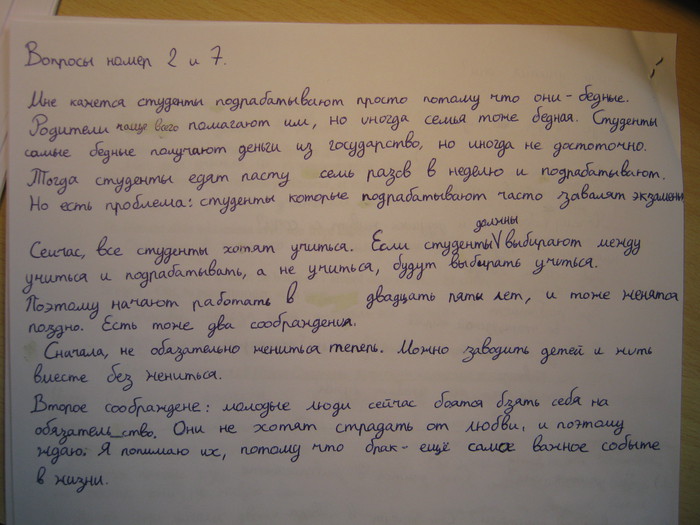 Вопросы номер 2 и 7.
Мне кажется студенты подрабатывают просто потому что они - бедные.
Родители помагают им, но иногда семья тоже бедная. Студенты
самые бедные получают деньги из государство, но иногда не достоточно.
Тогда студенты едят пасту семь разов в неделю и подрабатывают.
Но есть проблема: студенты которые подрабатывают часто завалят экзамены
Сейчас, все студенты хотят учиться. Если студенты должны выбирают между
учиться и подрабатывать, а не учиться, будут выбирать учиться.
Поэтому начают работать в двадцать пять лет, и тоже женятся
поздно. Есть тоже два сообрандения.
Сначала, не обязательно жениться теперь. Можно заводить детей и жить
вместе без жениться.
Второе соображдене: молодые люди сейчас боятся бзять себя на
обязательство. Они не хотят страдать от любви, и поэтому
ждаю. Я понимаю их, потому что брак - ещё самое важное событе
в жизни.